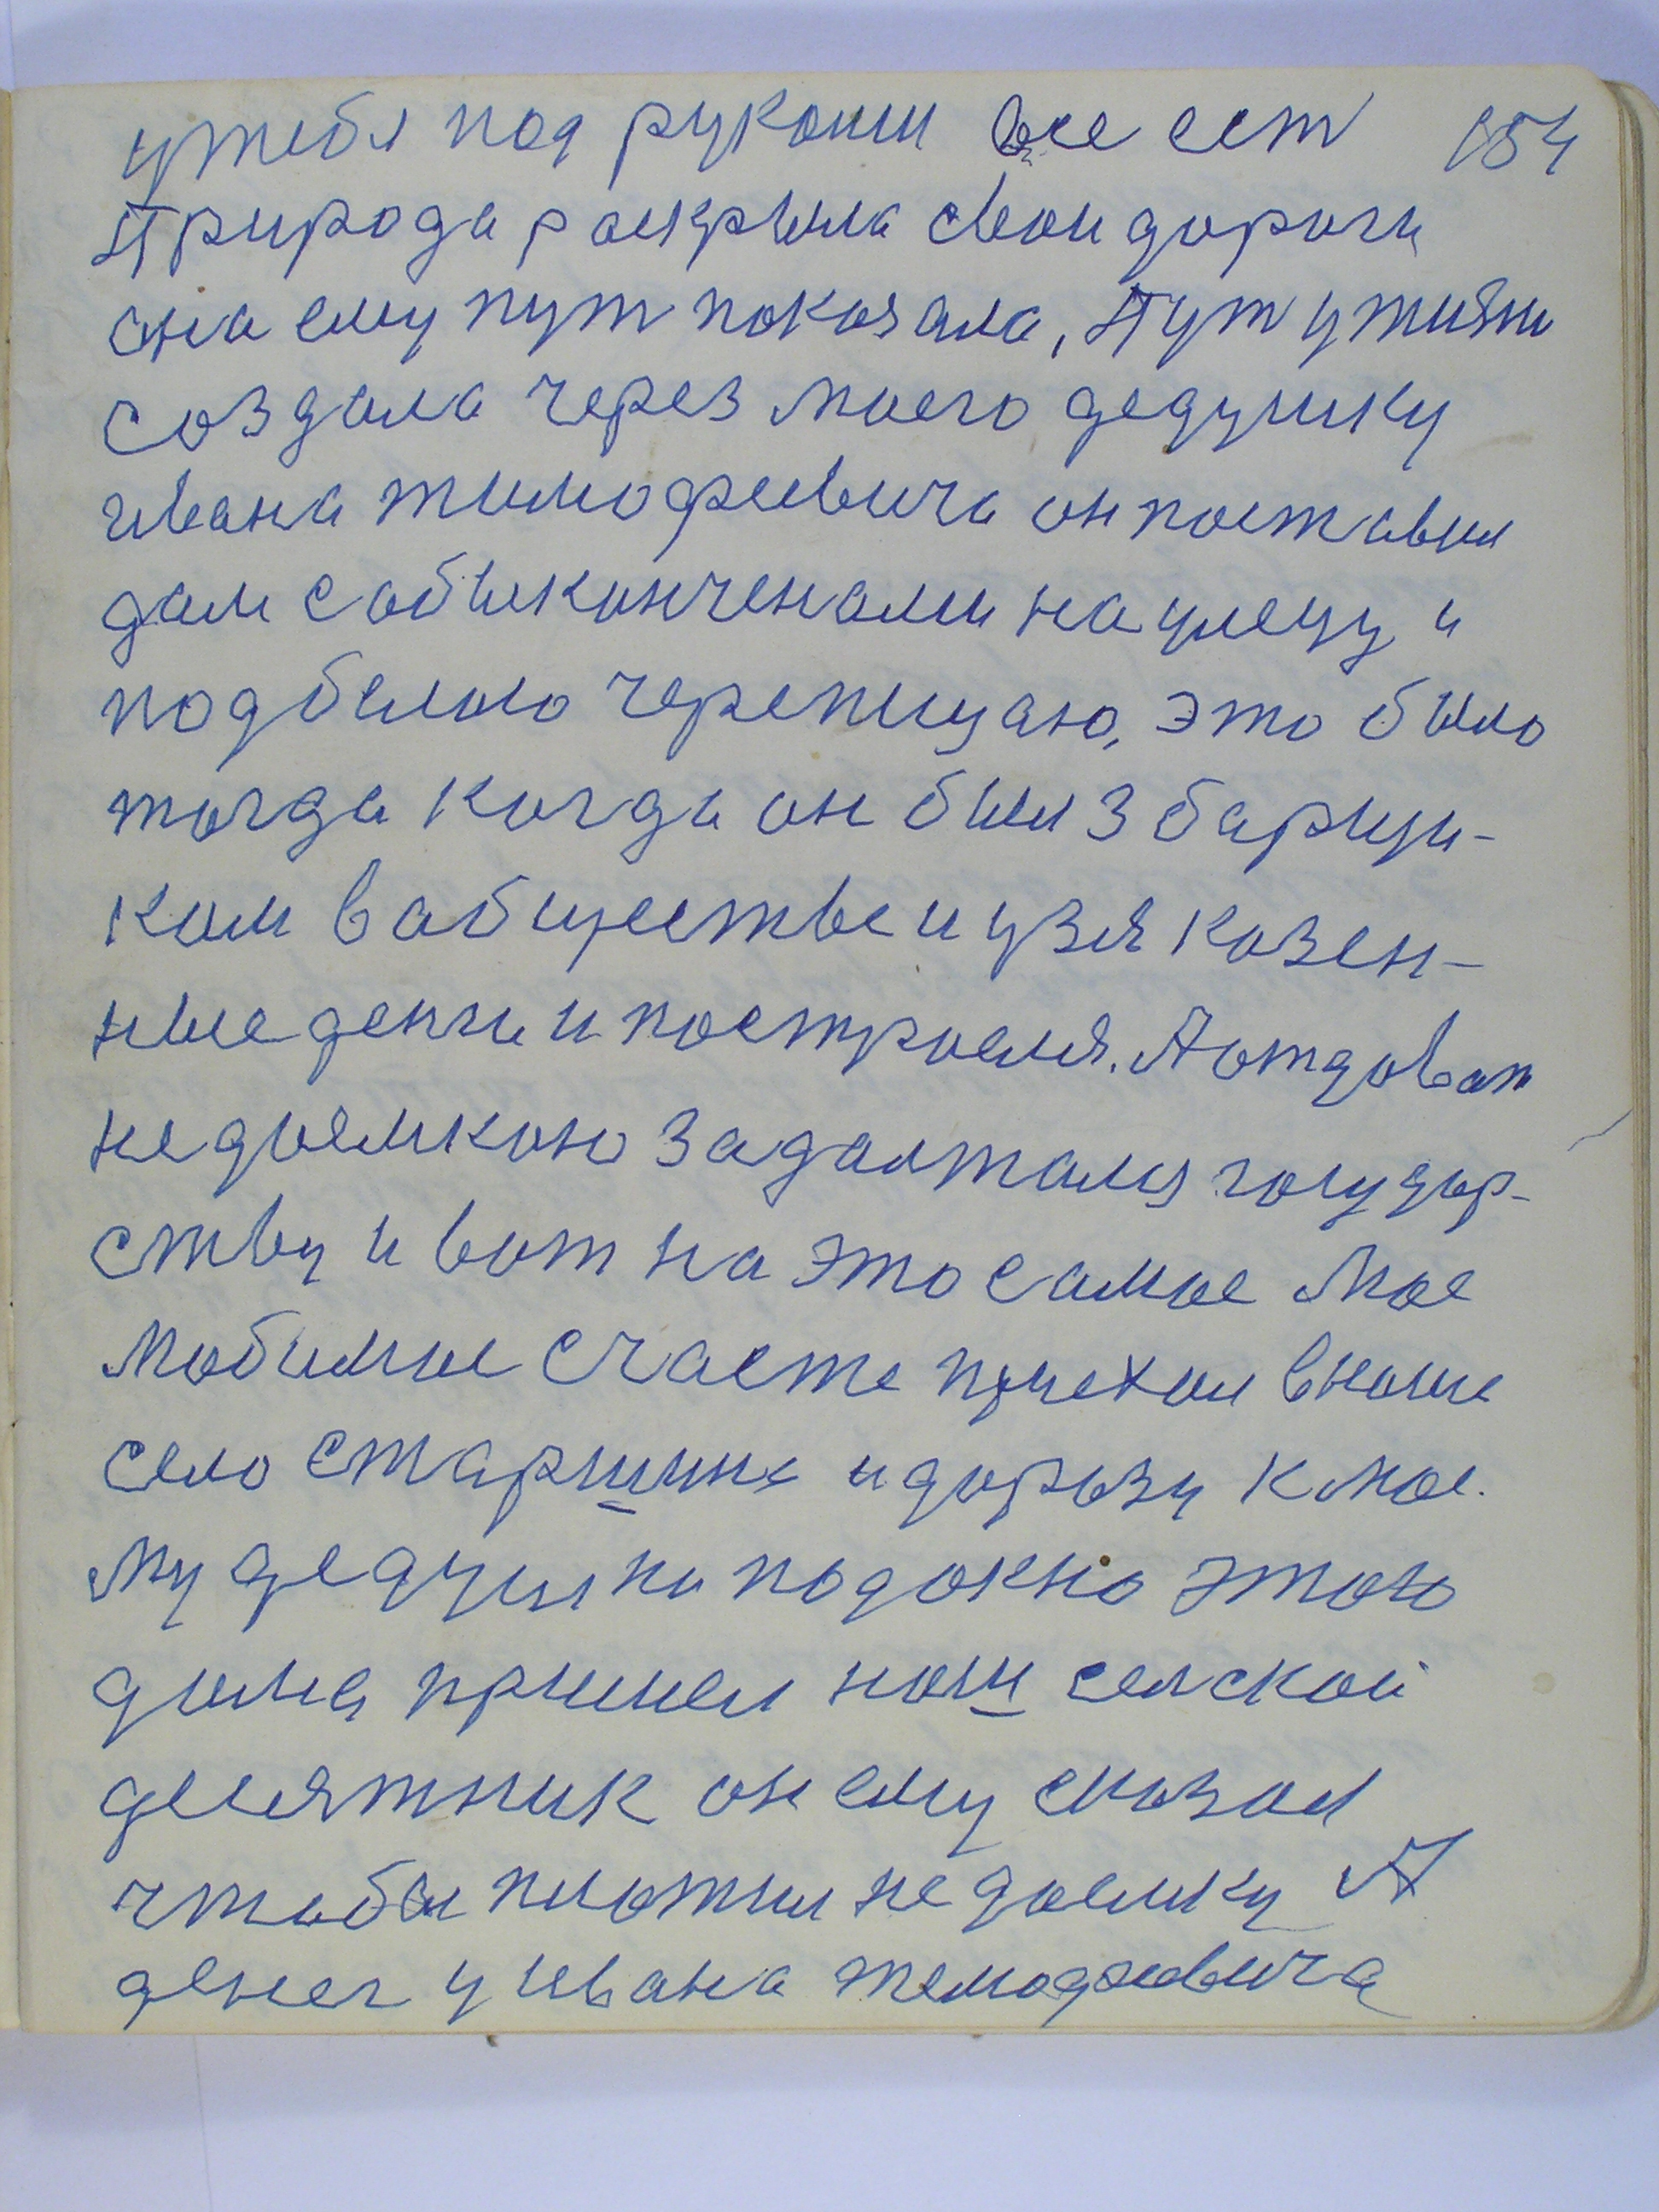 утебя под рукоми все ест 154
Природа роскрыла свои дороги
она ему пут показала, Пут у жизни
создала через моего дедушку
ивана тимофеевича он поставил
дом с обиконченами на улецу и
подбелою черепицаю, это было
тогда когда он был з барщи-
ком в абществе и узял казен-
ные денги и построеля. А отдават
недоемкою задалталя государ-
ству и вот на это самое мое
любимое счасте приехал внаше
село старшина идорозу к мое.
му дедушки подокно этого
дома пришел нош селской
десятник он ему сказал
чтобы плотил недоемку А
денег у ивана темофеевича